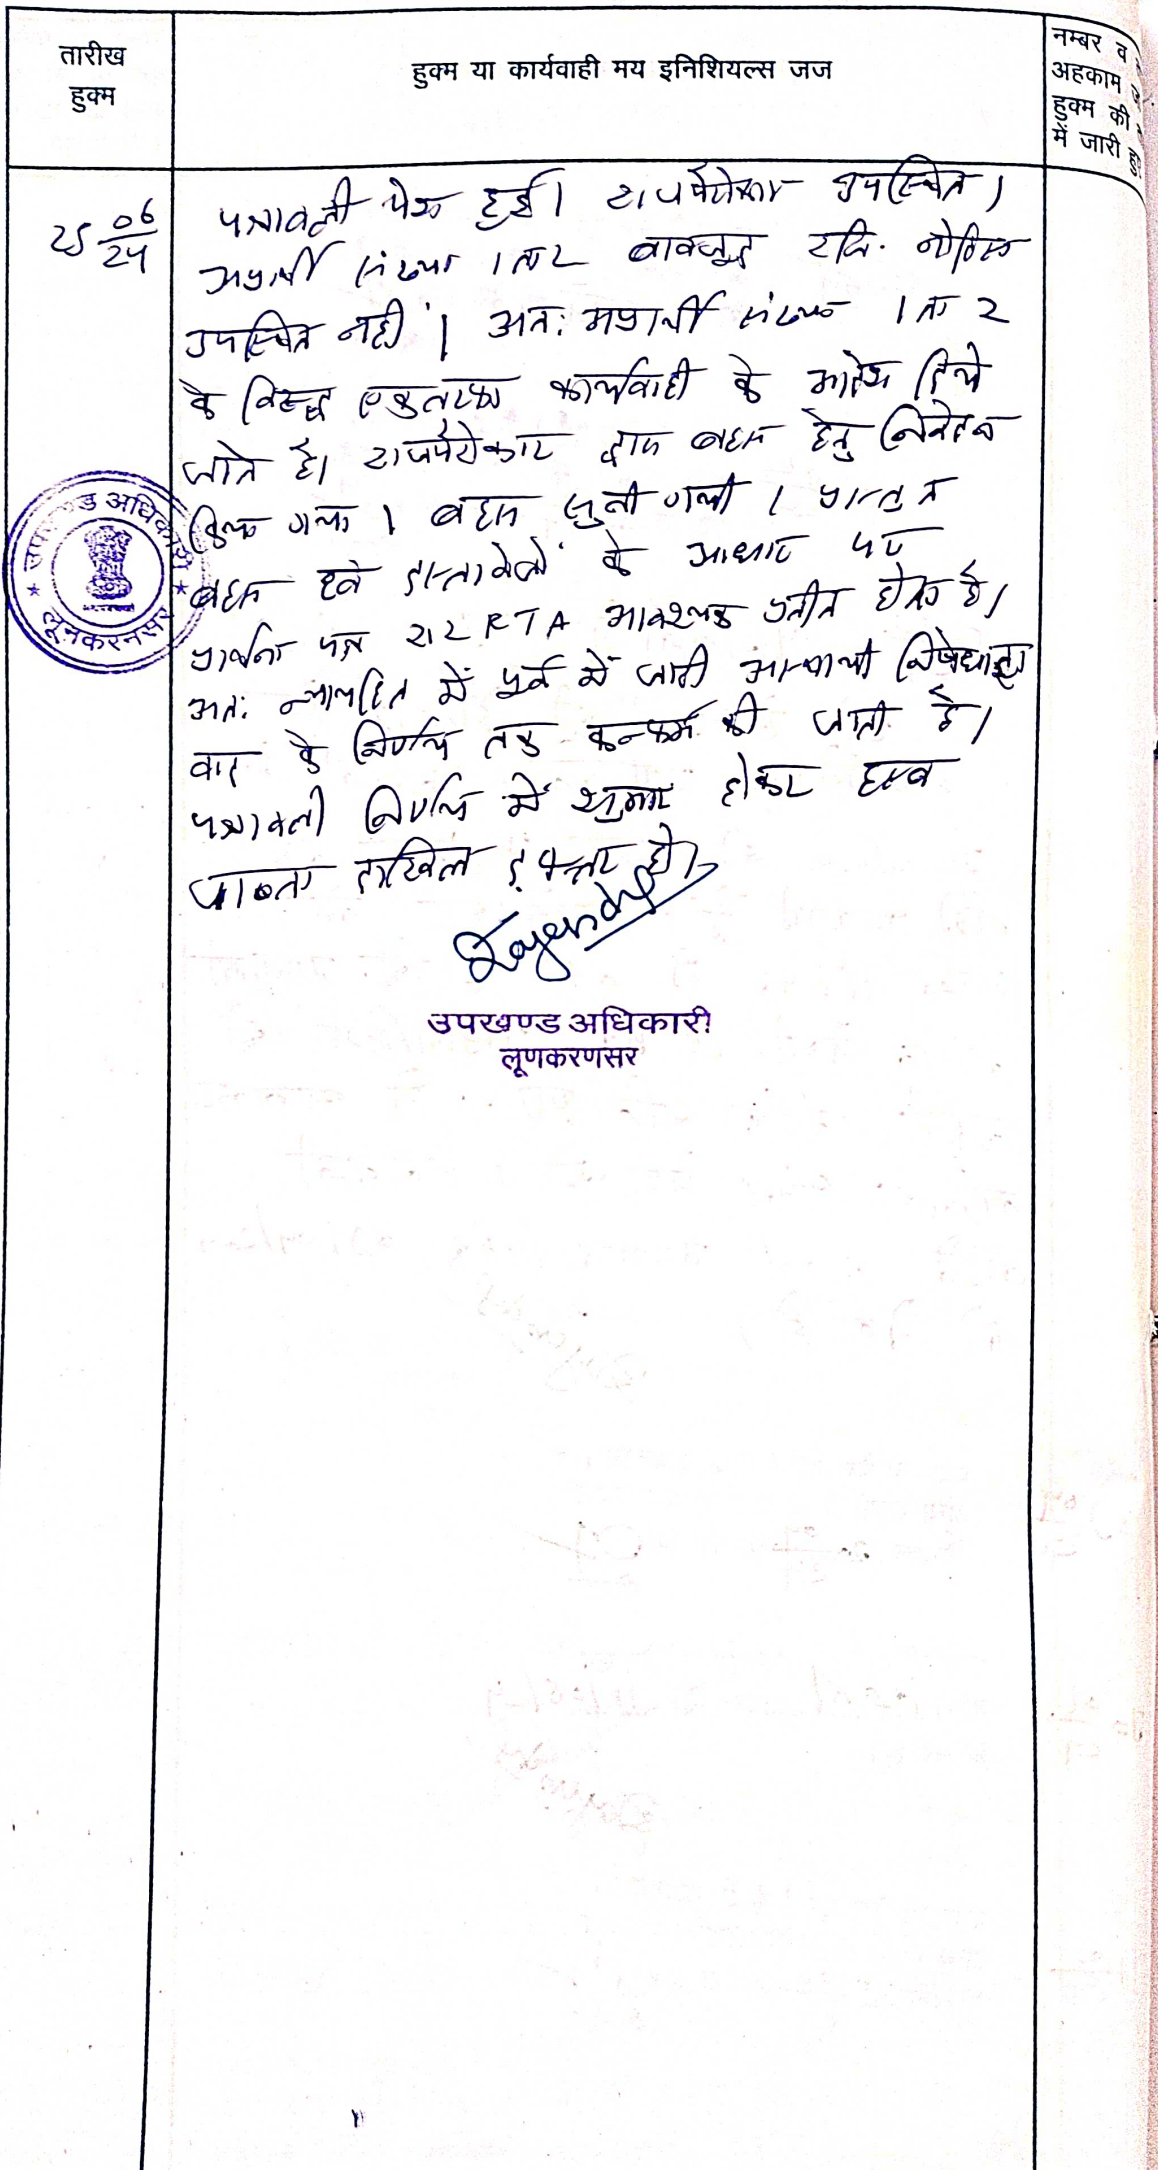 तारीख
हुक्म
हुक्म या कार्यवाही मय इनिशियल्स जज
नम्बर व
अहकाम
हुक्म की
में जारी
25 06/24
पत्रावली पेश हुई। राजपैरोकार उपस्थित।
अप्रार्थी संख्या 1 ता 2 बावजूद रजि. नोटिस
उपस्थित नहीं। अतः अप्रार्थी संख्या 1 ता 2
के विरूद्ध एकतरफा कार्यवाही के आदेश दिये
जाते है। राजपैरोकार द्वारा बहस हेतु निवेदन
किया गया। बहस सुनी गयी। प्रस्तुत
बहस एवं दस्तावेजों के आधार पर
प्रार्थना पत्र 212 RTA आवश्यक प्रतीत होता है।
अतः न्यायहित में पूर्व में जारी अस्थायी निषेधाज्ञा
वाद के निर्णय तक कन्फर्म की जाती है।
पत्रावली निर्णित में शुमार होकर
जाब्ता दाखिल दफ्तर हो।
उपखण्ड अधिकारी
लूनकरनसर
उपखण्ड अधिकारी
लूणकरणसर